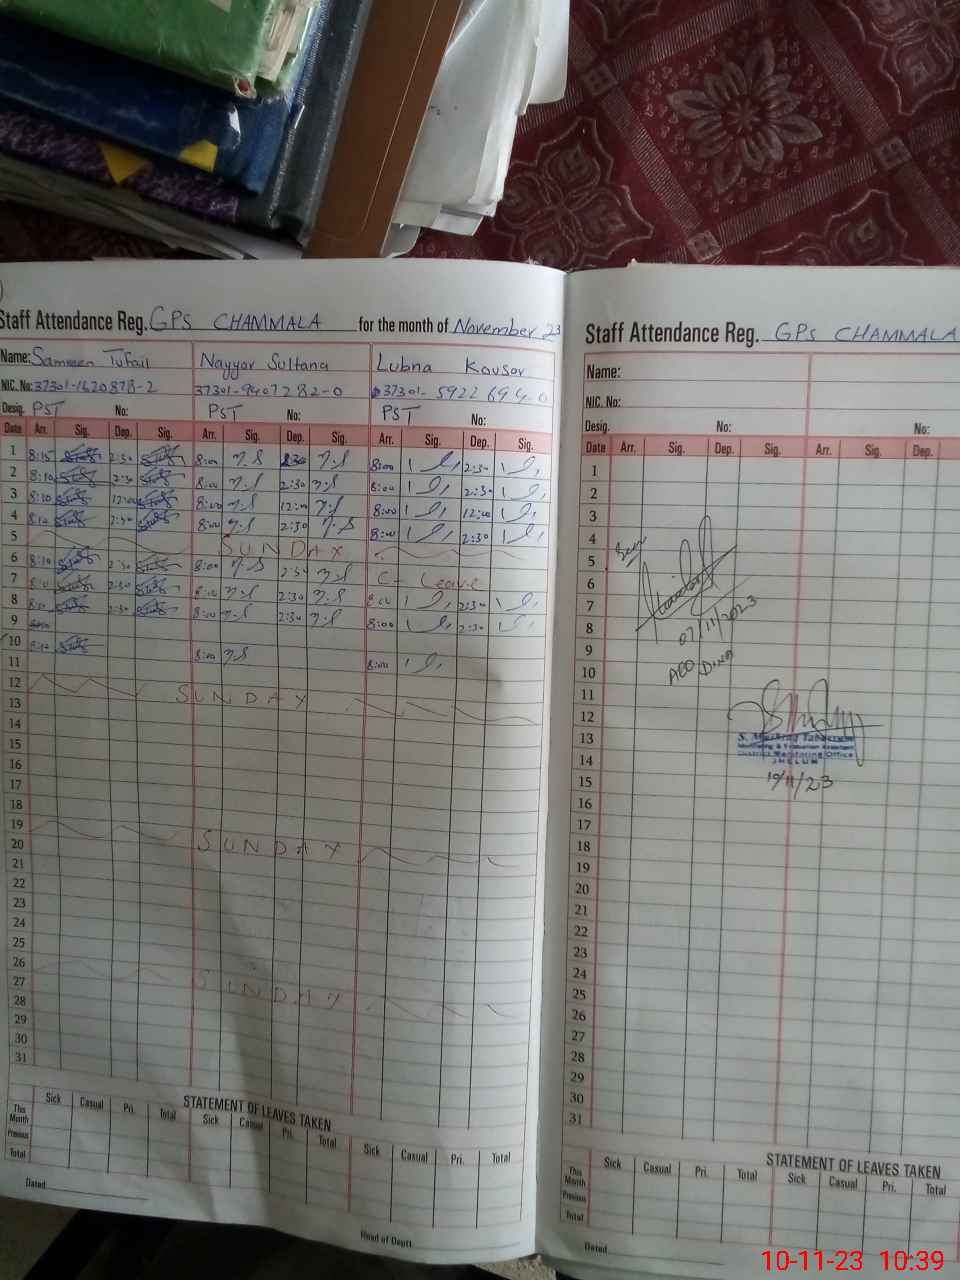 Staff Attendance Reg. GPS CHAMMALA for the month of November 23
Name: Samreen Tufail Nayyar Sultana Lubna Kousar
NIC. No: 37301-1620878-2 37301-9407282-0 37301-5922694-0
Desig. PST No: PST No: PST No:
Date Arr. Sig. Dep. Sig. Arr. Sig. Dep. Sig. Arr. Sig. Dep. Sig.
1 8:15 2:30 8:00 N.S 2:30 N.S 8:00 2:30
2 8:10 2:30 8:00 N.S 2:30 N.S 8:00 2:30
3 8:10 12:00 8:00 N.S 12:00 N.S 8:00 12:00
4 8:10 2:30 8:00 N.S 2:30 N.S 8:00 2:30
5 SUNDAY
6 8:10 2:30 8:00 N.S 2:30 N.S C-Leave
7 8:10 2:30 8:00 N.S 2:30 N.S 8:00 2:30
8 8:10 2:30 8:00 N.S 2:30 N.S 8:00 2:30
9
10 8:10 8:00 N.S 8:00
11
12 SUNDAY
13
14
15
16
17
18
19 SUNDAY
20
21
22
23
24
25
26 SUNDAY
27
28
29
30
31
STATEMENT OF LEAVES TAKEN
Sick Casual Pri. Total Sick Casual Pri. Total Sick Casual Pri. Total
This Month
Previous
Total
Dated
Head of Deptt
Staff Attendance Reg. GPS CHAMMALA
Name:
NIC. No:
Desig. No: No:
Date Arr. Sig. Dep. Sig. Arr. Sig. Dep.
1
2
3
4
5
6
7
8
9
10
11
12
13
14
15
16
17
18
19
20
21
22
23
24
25
26
27
28
29
30
31
Seen
07/11/2023
AEO Dina
Monitoring & Evaluation Assistant
District Monitoring Office
JHELUM
10/11/23
STATEMENT OF LEAVES TAKEN
Sick Casual Pri. Total Sick Casual Pri. Total
This Month
Previous
Total
Dated
10-11-23 10:39